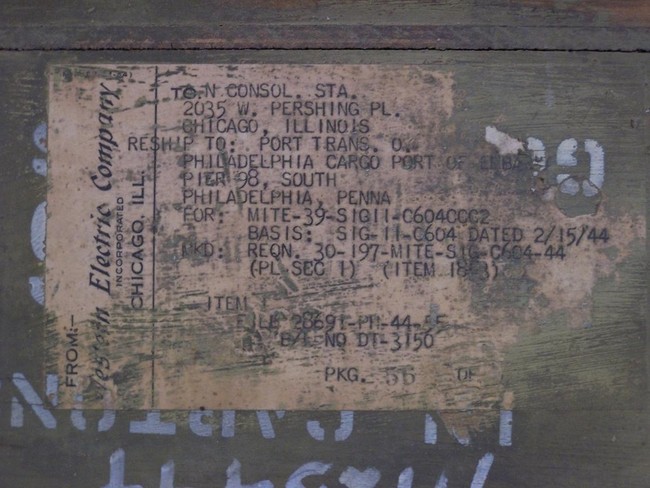 FROM:-
Western Electric Company
INCORPORATED
CHICAGO, ILL.
TO: N CONSOL. STA.
2035 W. PERSHING PL.
CHICAGO, ILLINOIS
RESHIP TO: PORT TRANS. O.
PHILADELPHIA CARGO PORT OF
PIER 98, SOUTH
PHILADELPHIA, PENNA
FOR: MITE-39-SIGII-C604CCC2
BASIS: SIG-II-C604 DATED 2/15/44
MKD: REQN. 30-197-MITE-SIG-C604-44
(PL SEC 1) (ITEM 18-3)
ITEM
FILE 28691-PH-44-55
B/L NO DT-3150
PKG. 55 OF